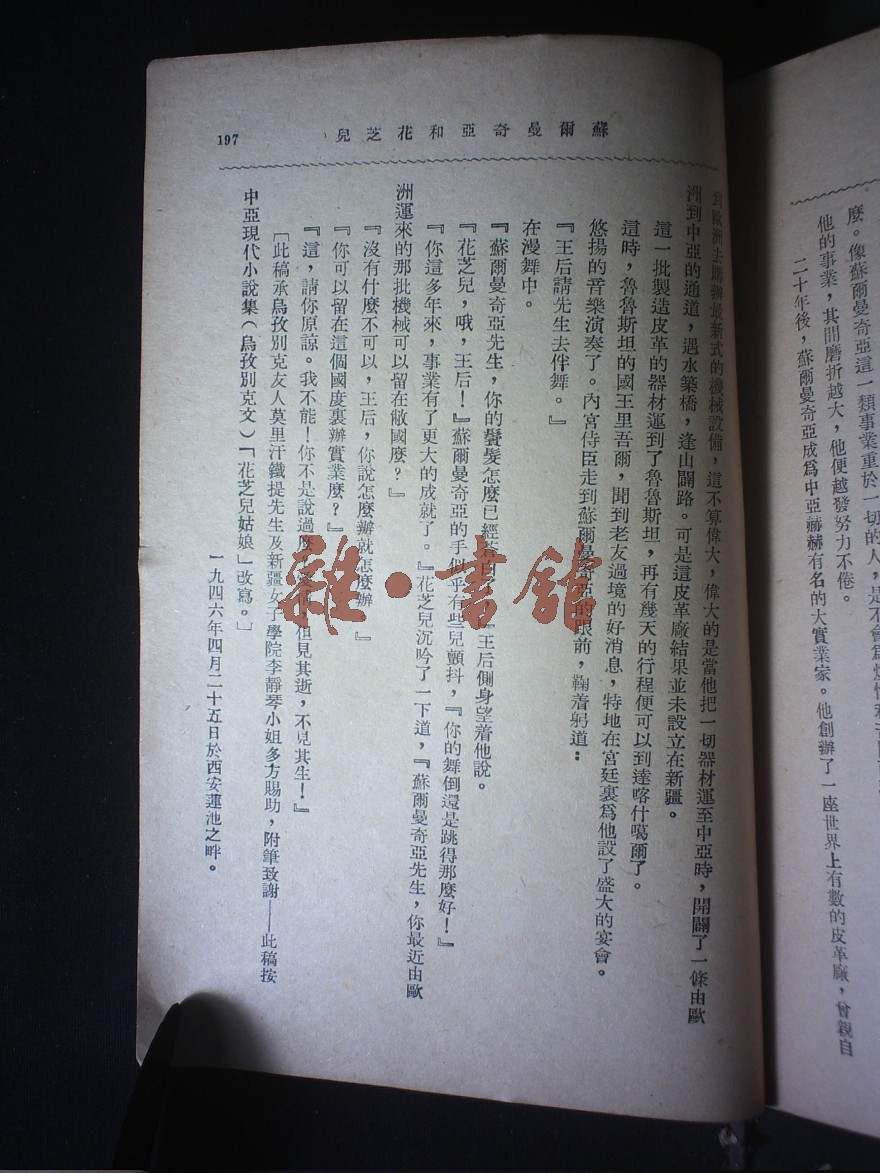 麼。像蘇爾曼奇亞這一類事業重於一切的人，是不會爲
他的事業，其間磨折越大，他便越發努力不倦。
二十年後，蘇爾曼奇亞成爲中亞赫赫有名的大實業家。他創辦了一座世界上有數的皮革廠，曾親自
蘇爾曼奇亞和花芝兒
197
到歐洲去購辦最新式的機械設備，這不算偉大，偉大的是當他把一切器材運至中亞時，開闢了一條由歐
洲到中亞的通道，遇水築橋，逢山闢路。可是這皮革廠結果並未設立在新疆。
這一批製造皮革的器材運到了魯魯斯坦，再有幾天的行程便可以到達喀什噶爾了。
這時，魯魯斯坦的國王里吾爾，聞到老友過境的好消息，特地在宮廷裏爲他設了盛大的宴會。
悠揚的音樂演奏了。內宮侍臣走到蘇爾曼奇亞的跟前，鞠着躬道：
『王后請先生去伴舞。』
在漫舞中。
『蘇爾曼奇亞先生，你的鬢髮怎麼已經蒼白了』王后側身望着他說。
『花芝兒，哦，王后！』蘇爾曼奇亞的手似乎有些兒顫抖，『你的舞倒還是跳得那麼好！』
『你這多年來，事業有了更大的成就了。』花芝兒沉吟了一下道，『蘇爾曼奇亞先生，你最近由歐
洲運來的那批機械可以留在敝國麼？』
『沒有什麼不可以，王后，你說怎麼辦就怎麼辦。』
『你可以留在這個國度裏辦實業麼？』
『這，請你原諒。我不能！你不是說過麼，但見其逝，不見其生！』
〔此稿承烏孜別克友人莫里汗鐵提先生及新疆女子學院李靜琴小姐多方賜助，附筆致謝——此稿按
中亞現代小說集（烏孜別克文）「花芝兒姑娘」改寫。〕
一九四六年四月二十五日於西安蓮池之畔。
雜·書館